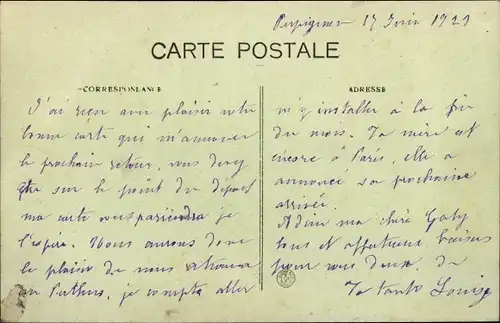 Perpignan 17 Juin 1921
CARTE POSTALE
CORRESPONDANCE
ADRESSE
J'ai reçu avec plaisir votre
bonne carte qui m'annonce
le prochain retour, vous devez
être sur le point du départ
ma carte vous parviendra je
l'espère. Nous aurons donc
le plaisir de nous retrouver
au Perthus, je compte aller
m'y installer à la fin
du mois. Ta mère est
encore à Paris, elle a
annoncé sa prochaine
arrivée.
Adieu ma chère Gaby
bons et affectueux baisers
pour vous deux. de
Ta tante Louise